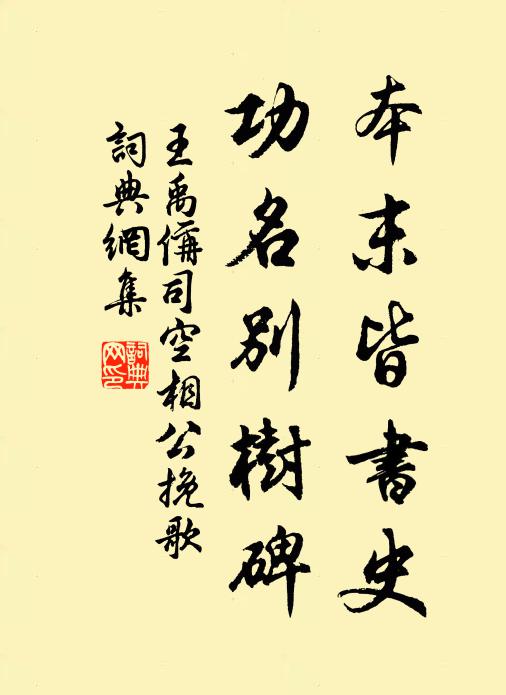 本末皆書史
功名別樹碑
王禹偁司空相公挽歌
詞典網集
詞典網印